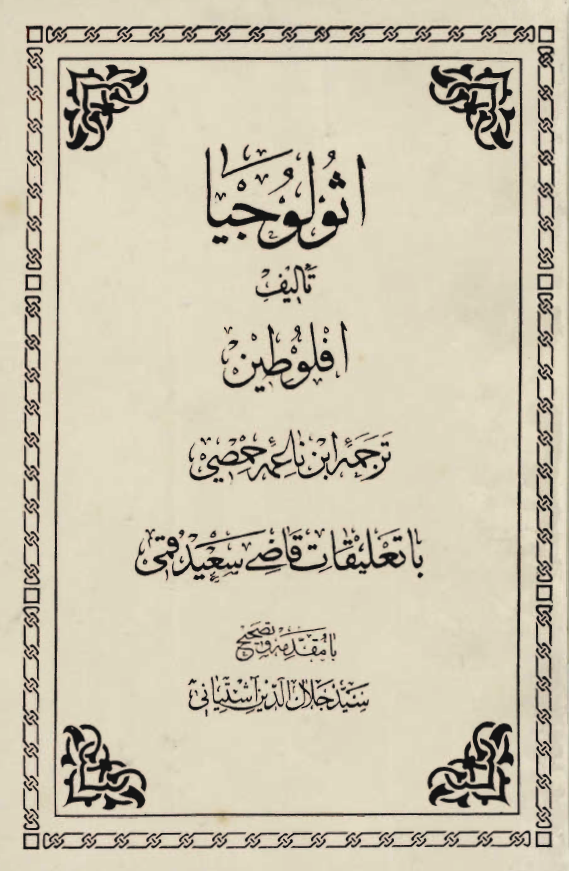 اثولوجیا
تالیف
افلوطین
ترجمهٔ ابن ناعمه حمصی
با تعلیقات قاضی سعید قمی
با مقدمه و تصحیح
سید جلال‌الدین آشتیانی